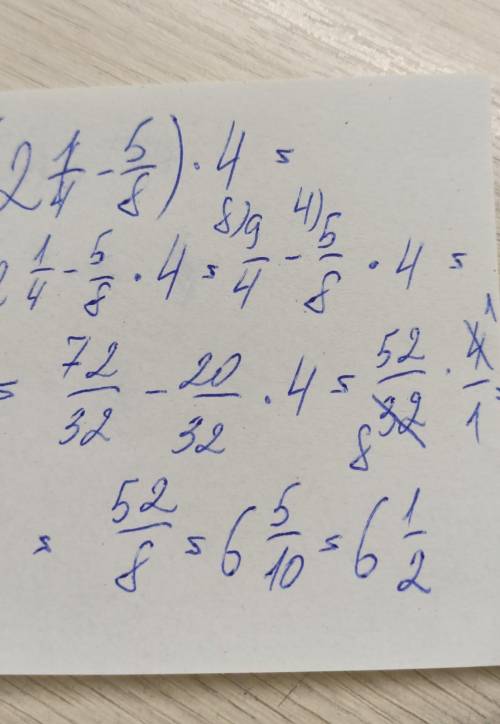 (2 1/4 - 5/8) · 4 =
2 1/4 - 5/8 · 4 = 8) 9/4 - 4) 5/8 · 4 =
= 72/32 - 20/32 · 4 = 52/32 8 · 4/1 1
= 52/8 = 6 5/10 = 6 1/2